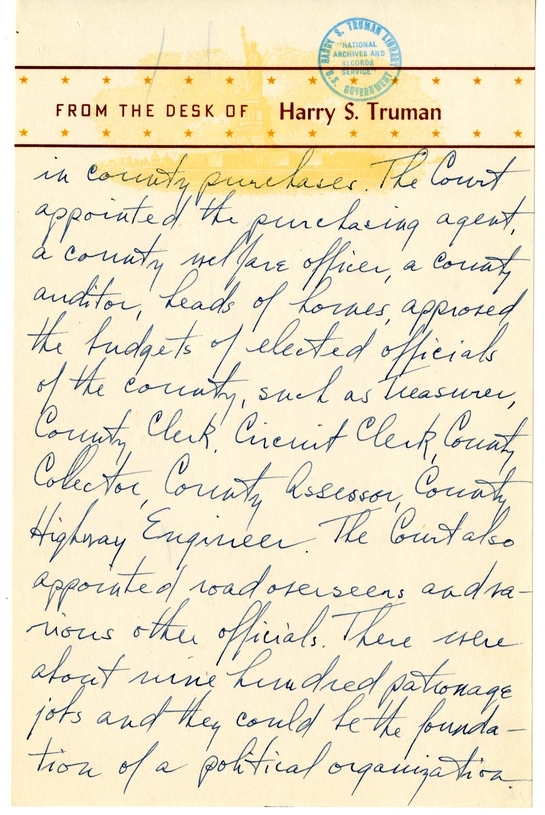 HARRY S. TRUMAN LIBRARY
"NATIONAL
ARCHIVES AND
RECORDS
SERVICE"
U.S. GOVERNMENT
FROM THE DESK OF Harry S. Truman
in county purchases. The Court
appointed the purchasing agent,
a county welfare officer, a county
auditor, heads of homes, approved
the budgets of elected officials
of the county, such as Treasurer,
County Clerk, Circuit Clerk, County
Collector, County Assessor, County
Highway Engineer. The Court also
appointed road overseers and va-
rious other officials. There were
about nine hundred patronage
jobs and they could be the founda-
tion of a political organization.